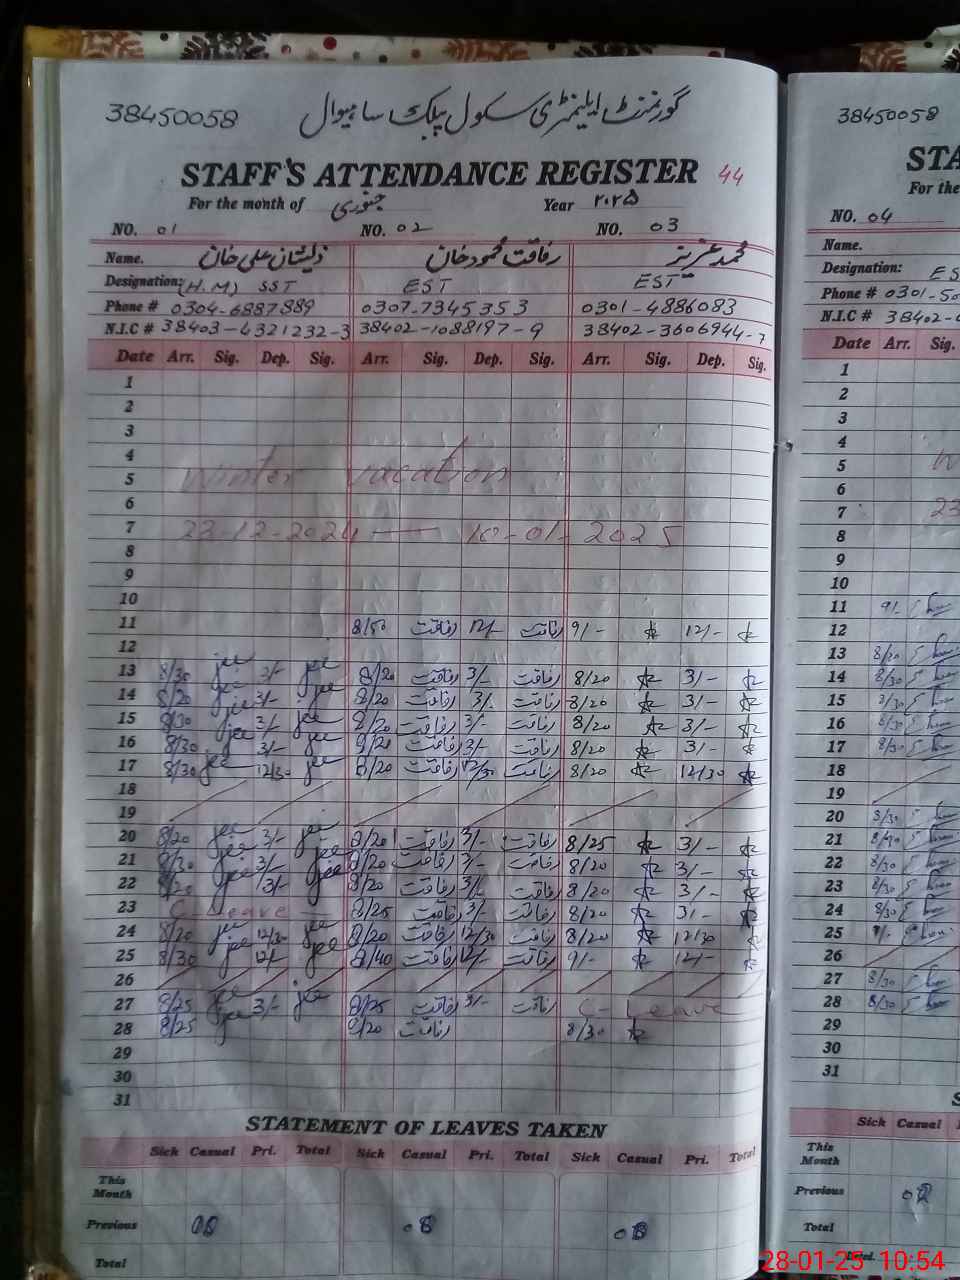 38450058 گورنمنٹ ایلیمنٹری سکول پبلک ساہیوال
STAFF'S ATTENDANCE REGISTER 44
For the month of جنوری Year ۲۰۲۵
NO. 01 NO. 02 NO. 03
Name. ذیشان علی خان رفاقت محمود خان محمد عزیز
Designation: (H.M) SST EST EST
Phone # 0304-6887889 0307-7345353 0301-4886083
N.I.C # 38403-4321232-3 38402-1088197-9 38402-3606944-7
Date Arr. Sig. Dep. Sig. Arr. Sig. Dep. Sig. Arr. Sig. Dep. Sig.
1
2
3
4
5 Winter vacation
6
7 23-12-2024 — 10-01-2025
8
9
10
11 8/50 رفاقت 12/- رفاقت 9/- 12/-
12
13 8/30 3/- 8/20 رفاقت 3/- رفاقت 8/20 3/-
14 8/20 3/- 8/20 رفاقت 3/- رفاقت 8/20 3/-
15 8/30 3/- 8/20 رفاقت 3/- رفاقت 8/20 3/-
16 8/30 3/- 8/20 رفاقت 3/- رفاقت 8/20 3/-
17 8/30 12/30 8/20 رفاقت 12/30 رفاقت 8/20 12/30
18
19
20 8/20 3/- 8/20 رفاقت 3/- رفاقت 8/25 3/-
21 8/30 3/- 8/20 رفاقت 3/- رفاقت 8/20 3/-
22 8/20 3/- 8/20 رفاقت 3/- رفاقت 8/20 3/-
23 C-Leave 8/25 رفاقت 3/- رفاقت 8/20 3/-
24 8/20 12/30 8/20 رفاقت 12/30 رفاقت 8/20 12/30
25 8/30 12/- 8/40 رفاقت 12/- رفاقت 9/- 12/-
26
27 8/25 3/- 8/25 رفاقت 3/- رفاقت C-Leave
28 8/25 8/20 رفاقت 8/30
29
30
31
STATEMENT OF LEAVES TAKEN
Sick Casual Pri. Total Sick Casual Pri. Total Sick Casual Pri. Total
This Month
Previous
Total
38450058
STA
For the
NO. 04
Name.
Designation: ES
Phone # 0301-50
N.I.C # 38402-
Date Arr. Sig.
1
2
3
4
5 W
6
7 23
8
9
10
11 9/-
12
13 8/20
14 8/30
15 8/30
16 8/30
17 8/30
18
19
20 8/30
21
22 8/30
23 8/30
24 8/30
25 9/-
26
27 8/30
28 8/30
29
30
31
S
Sick Casual
This Month
Previous
Total
28-01-25 10:54